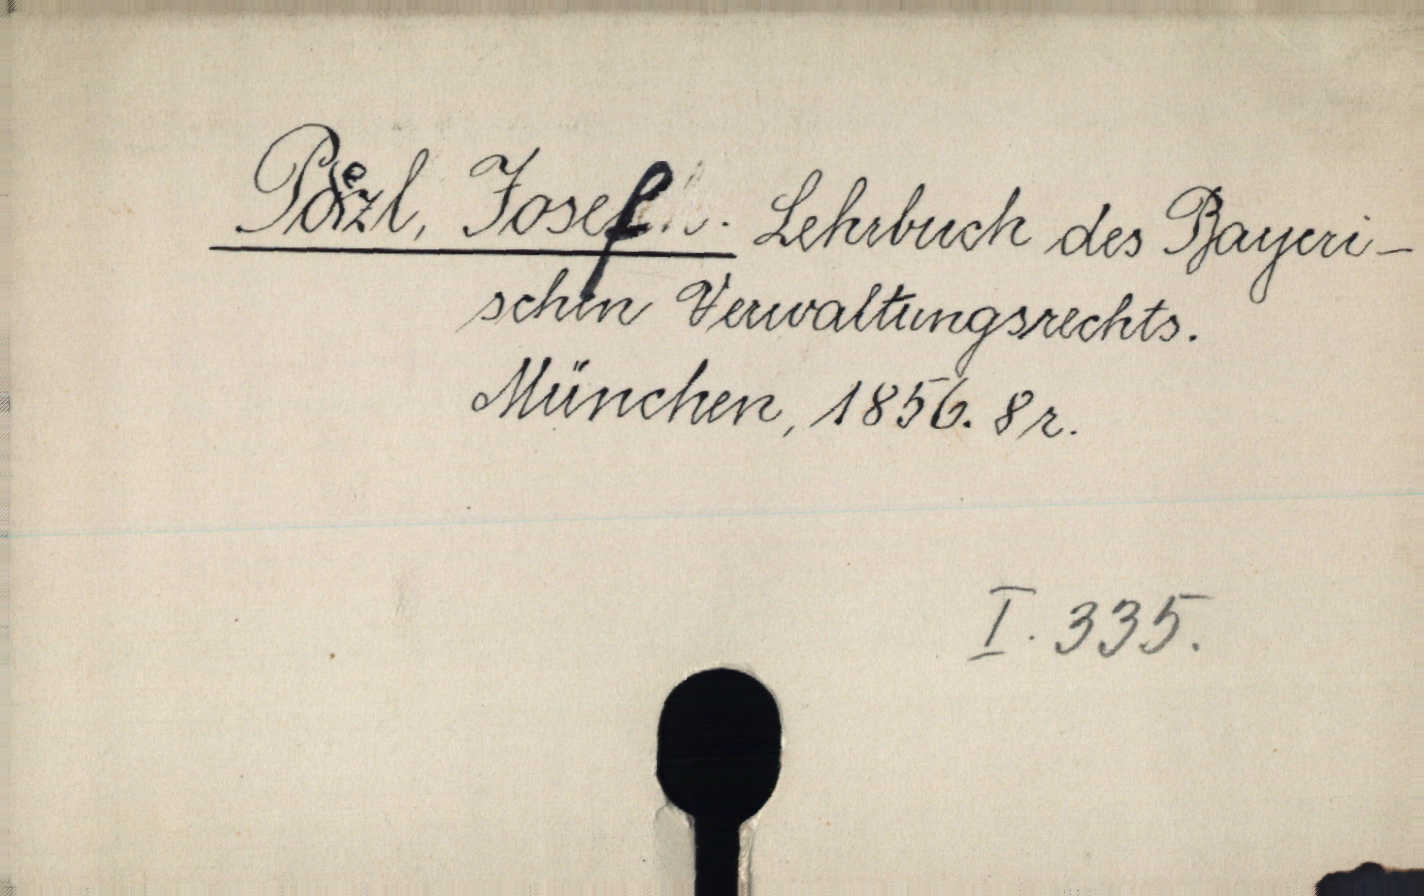 Poezl, Josef. Lehrbuch des Bayeri-
schen Verwaltungsrechts.
München, 1856. 8r.
I. 335.